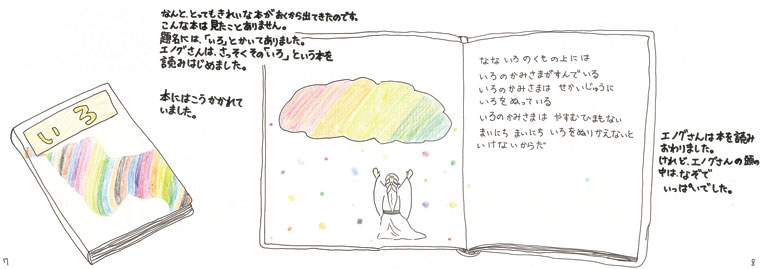 なんと、とってもきれいな本がおくから出てきたのです。
こんな本は見たことありません。
題名には、「いろ」とかいてありました。
エノグさんは、さっそくその「いろ」という本を
読みはじめました。
本にはこうかかれて
いました。
いろ
なないろのくもの上には
いろのかみさまがすんでいる
いろのかみさまは せかいじゅうに
いろをぬっている
いろのかみさまは やすむひまもない
まいにち まいにち いろをぬりかえないと
いけないからだ
エノグさんは本を読み
おわりました。
けれど、エノグさんの頭の
中は、なぞで
いっぱいでした。
7
8